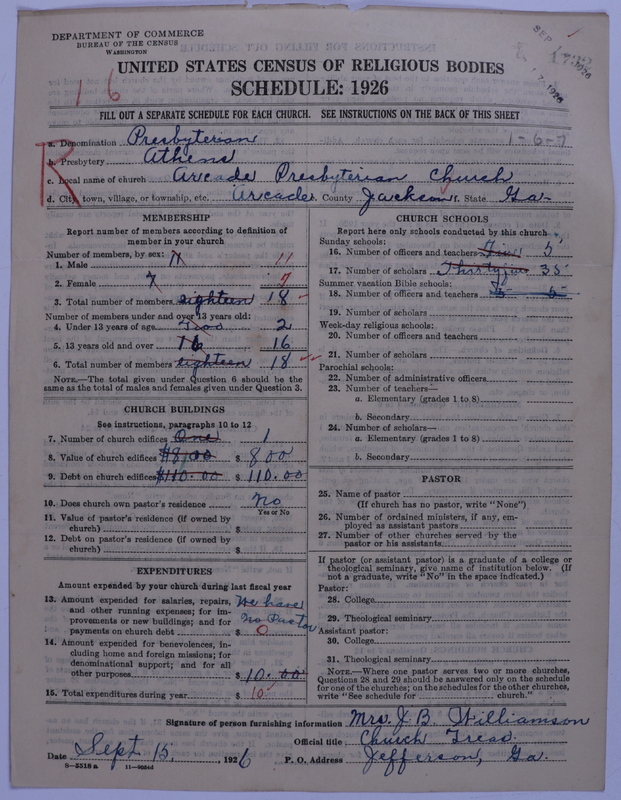 DEPARTMENT OF COMMERCE
BUREAU OF THE CENSUS
WASHINGTON
SEP 17 1926
UNITED STATES CENSUS OF RELIGIOUS BODIES
SCHEDULE: 1926
16
FILL OUT A SEPARATE SCHEDULE FOR EACH CHURCH. SEE INSTRUCTIONS ON THE BACK OF THIS SHEET
R
a. Denomination Presbyterian 1-6-7
b. Presbytery Athens
c. Local name of church Arcade Presbyterian Church
d. City, town, village, or township, etc. Arcade e. County Jackson f. State Ga-
MEMBERSHIP
Report number of members according to definition of
member in your church
Number of members, by sex:
1. Male 11 11
2. Female 7 7
3. Total number of members eighteen 18
Number of members under and over 13 years old:
4. Under 13 years of age Two 2
5. 13 years old and over 16 16
6. Total number of members eighteen 18
NOTE.—The total given under Question 6 should be the
same as the total of males and females given under Question 3.
CHURCH BUILDINGS
See instructions, paragraphs 10 to 12
7. Number of church edifices One 1
8. Value of church edifices $8,00 $ 800
9. Debt on church edifices $110.00 $ 110.00
10. Does church own pastor's residence No
Yes or No
11. Value of pastor's residence (if owned by
church) $
12. Debt on pastor's residence (if owned by
church) $
EXPENDITURES
Amount expended by your church during last fiscal year
13. Amount expended for salaries, repairs, We have
and other running expenses; for im- no Pastor
provements or new buildings; and for
payments on church debt $ 0
14. Amount expended for benevolences, in-
cluding home and foreign missions; for
denominational support; and for all
other purposes $ 10.00
15. Total expenditures during year $ 10
CHURCH SCHOOLS
Report here only schools conducted by this church
Sunday schools:
16. Number of officers and teachers Five 5
17. Number of scholars Thirtyfive 35
Summer vacation Bible schools:
18. Number of officers and teachers 5 5
19. Number of scholars
Week-day religious schools:
20. Number of officers and teachers
21. Number of scholars
Parochial schools:
22. Number of administrative officers
23. Number of teachers—
a. Elementary (grades 1 to 8)
b. Secondary
24. Number of scholars—
a. Elementary (grades 1 to 8)
b. Secondary
PASTOR
25. Name of pastor
(If church has no pastor, write "None")
26. Number of ordained ministers, if any, em-
ployed as assistant pastors
27. Number of other churches served by the
pastor or his assistants
If pastor (or assistant pastor) is a graduate of a college or
theological seminary, give name of institution below. (If
not a graduate, write "No" in the space indicated.)
Pastor:
28. College
29. Theological seminary
Assistant pastor:
30. College
31. Theological seminary
NOTE.—Where one pastor serves two or more churches,
Questions 28 and 29 should be answered only on the schedule
for one of the churches; on the schedules for the other churches,
write "See schedule for church."
Signature of person furnishing information Mrs. J. B. Williamson
Official title Church Treas.
Date Sept 15, 1926 P. O. Address Jefferson, Ga.